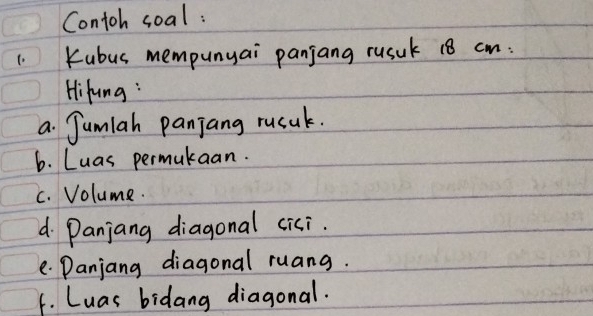 Contoh soal :
1. Kubus mempunyai panjang rusuk 18 cm.
Hitung :
a. Jumlah panjang rusuk.
b. Luas permukaan.
c. Volume.
d. Panjang diagonal sisi.
e. Panjang diagonal ruang.
f. Luas bidang diagonal.